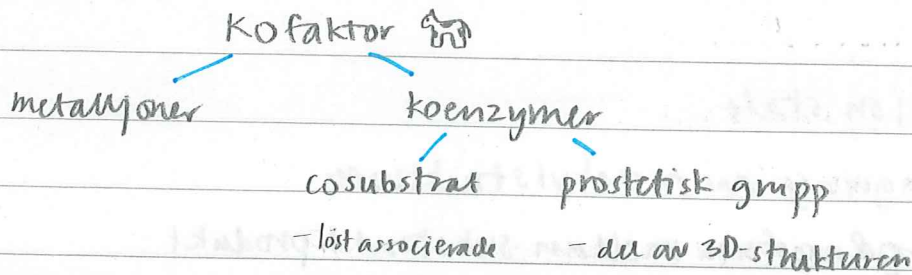 Kofaktor
metalljoner koenzymer
cosubstrat prostetisk grupp
- löst associerade - del av 3D-strukturen